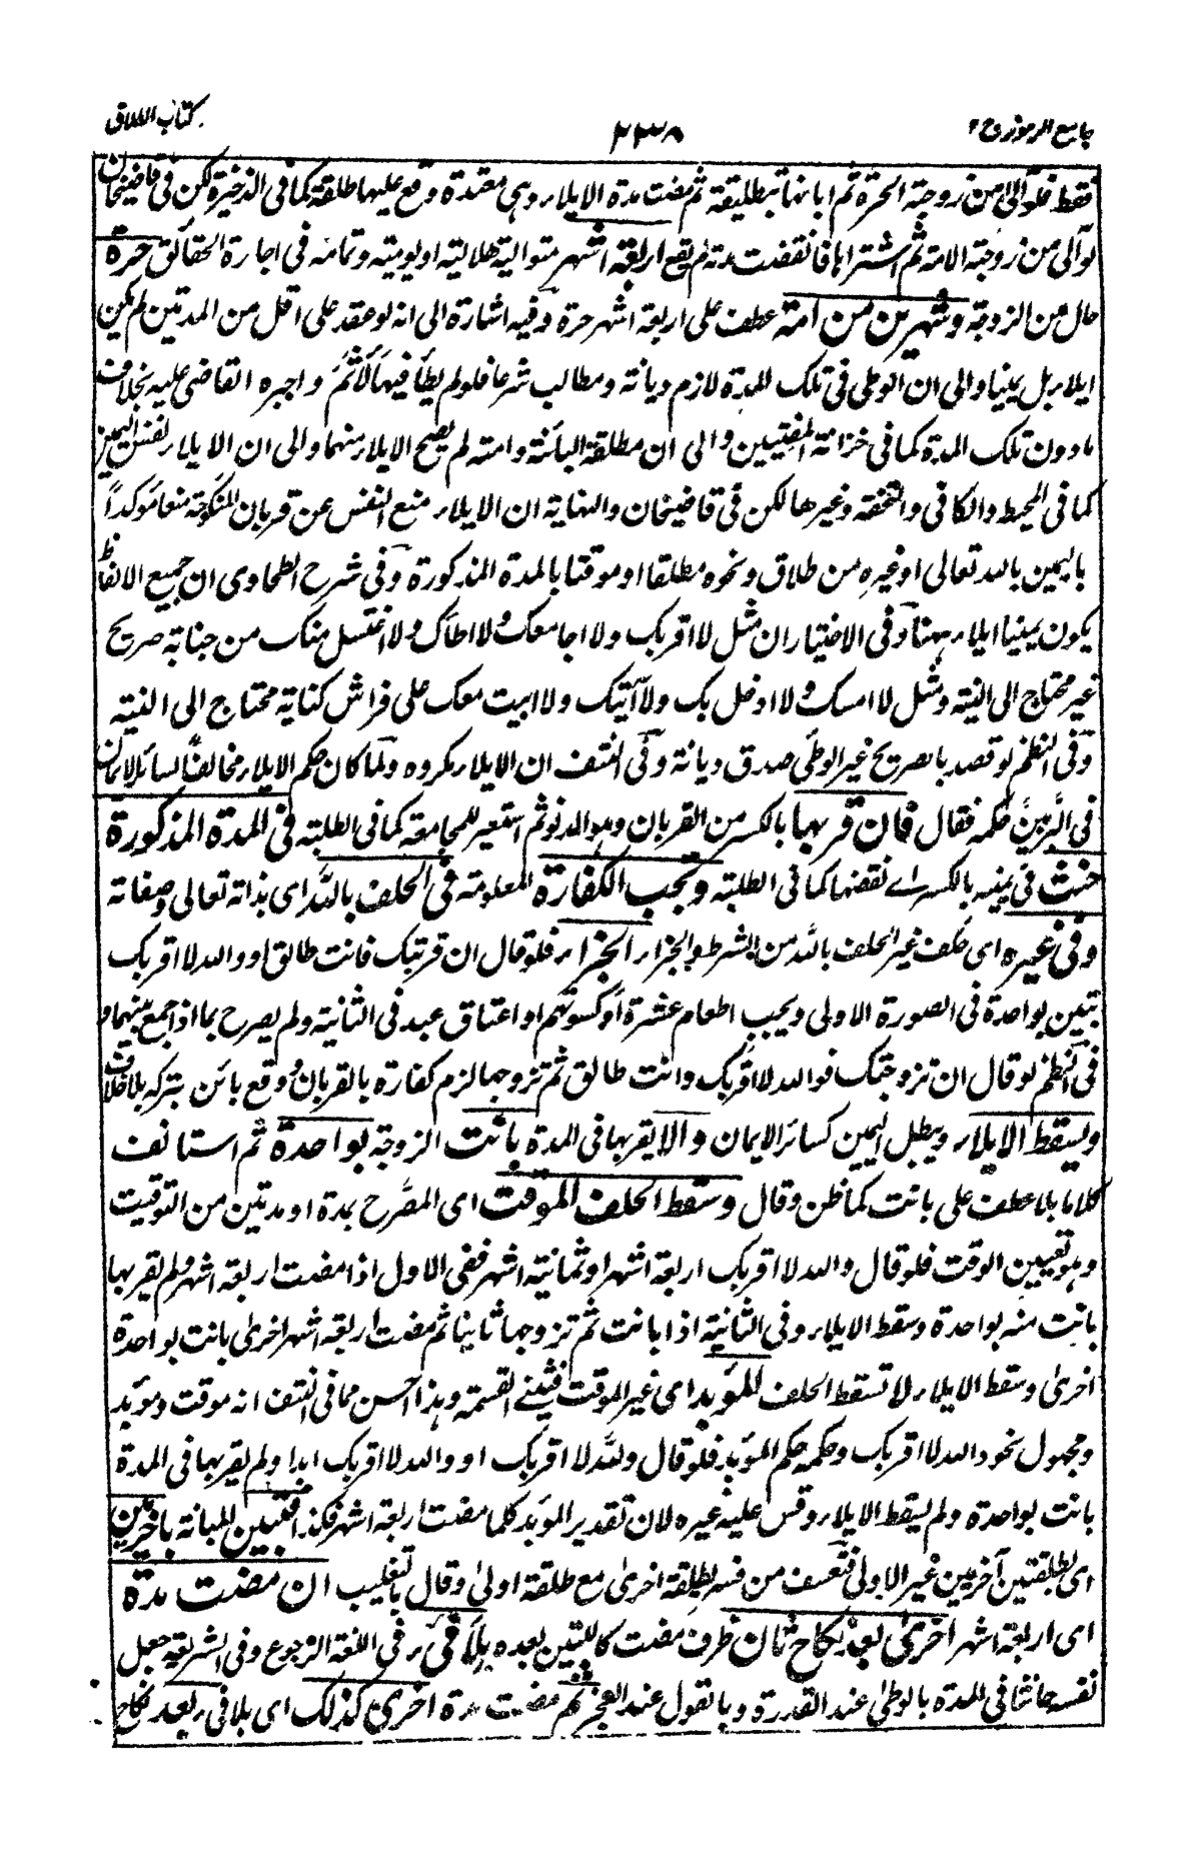 جامع الرموز ج ٢
٣٣٨
كتاب الطلاق
فقط فلو آلى من زوجته الحرة ثم ابانها بتطليقة ثم مضت مدة الايلاء وهي معتدة وقع عليها طلقة كما في الذخيرة لكن في قاضيخان
لو آلى من زوجته الامة ثم اشتراها فانقضت مدته لم يقع اربعة اشهر متوالية هلالية او يومية وتمامه في اجارة الحقائق حرة
حال من الزوجة وشهرين من امة عطف على اربعة اشهر حرة وفيه اشارة الى انه لو عقد على اقل من المدتين لم يكن
ايلاء بل يمينا والى ان الوطي في تلك المدة لازم ديانة ومطالب شرعا فلو لم يطأ فيها لأثم واجبره القاضي عليه بخلاف
ما دون تلك المدة كما في خزانة المفتيين والى ان مطلقة البائنة وامته لم يصح الايلاء منهما والى ان الايلاء نفس اليمين
كما في المحيط والكافي والتحفة وغيرها لكن في قاضيخان والنهاية ان الايلاء منع النفس عن قربان المنكوحة منعا مؤكدا
باليمين بالله تعالى او غيره من طلاق ونحوه مطلقا او موقتا بالمدة المذكورة وفي شرح الطحاوي ان جميع الالفاظ
يكون يمينا ايلاء ههنا وفي الاختيار ان مثل لا اقربك ولا اجامعك ولا اطأك ولا اغتسل منك من جنابة صريح
غير محتاج الى النية ومثل لا امسك ولا ادخل بك ولا آتيك ولا ابيت معك على فراش كناية محتاج الى النية
وفي النظم لو قصد بالصريح غير الوطي صدق ديانة وفي النتف ان الايلاء مكروه ولما كان حكم الايلاء مخالفا لسائر الايمان
في البر بين حكمه فقال فان قربها بالكسر من القربان وهو الدنو ثم استعير للمجامعة كما في الطلبة في المدة المذكورة
حنث في يمينه بالكسر اے نقضها كما في الطلبة ويجب الكفارة المعلومة في الحلف بالله اى بذاته تعالى وصفاته
وفي غيره اى حلف غير الحلف بالله من الشرط والجزاء الجزاء فلو قال ان قربتك فانت طالق او والله لا اقربك
تبين بواحدة في الصورة الاولى ويجب اطعام عشرة او كسوتهم او اعتاق عبد في الثانية ولم يصرح بما اذا جمع بينهما و
في النظم لو قال ان تزوجتك فوالله لا اقربك وانت طالق ثم تزوجها لزم كفارة بالقربان ووقع بائن بتركه بلا خلاف
ويسقط الايلاء ويبطل اليمين كسائر الايمان والا يقربها في المدة بانت الزوجة بواحدة ثم استانف
كلاما بلا عطف على بانت كما ظن وقال وسقط الحلف الموقت اى المصرح بمدة او مدتين من التوقيت
وهو تعيين الوقت فلو قال والله لا اقربك اربعة اشهر او ثمانية اشهر ففي الاول اذا مضت اربعة اشهر ولم يقربها
بانت منه بواحدة وسقط الايلاء وفي الثانية اذا بانت ثم تزوجها ثانيا ثم مضت اربعة اشهر اخرى بانت بواحدة
اخرى وسقط الايلاء لا تسقط الحلف المؤبد اى غير الموقت القسمة وهذا احسن مما في النتف انه موقت ومؤبد
ومجهول نحو والله لا اقربك وحكمه حكم المؤبد فلو قال والله لا اقربك او والله لا اقربك ابدا ولم يقربها في المدة
بانت بواحدة ولم يسقط الايلاء وقس عليه غيره لان تقدير المؤبد كلما مضت اربعة اشهر فكذا فتبين المبانة باخريين
اى بطلقتين آخريين غير الاولى فتعسف من فسر بطلقة اخرى مع طلقة اولى وقال بالتغليب ان مضت مدة
اى اربعة اشهر اخرى بعد نكاح ثان ظرف مضت كما للتبين بعده بلا فئ هو في اللغة الرجوع وفي الشريعة جعل
نفسه حانثا في المدة بالوطى عند القدرة وبالقول عند العجز ثم مضت مدة اخرى كذلك اى بلا فئ بعد نكاح